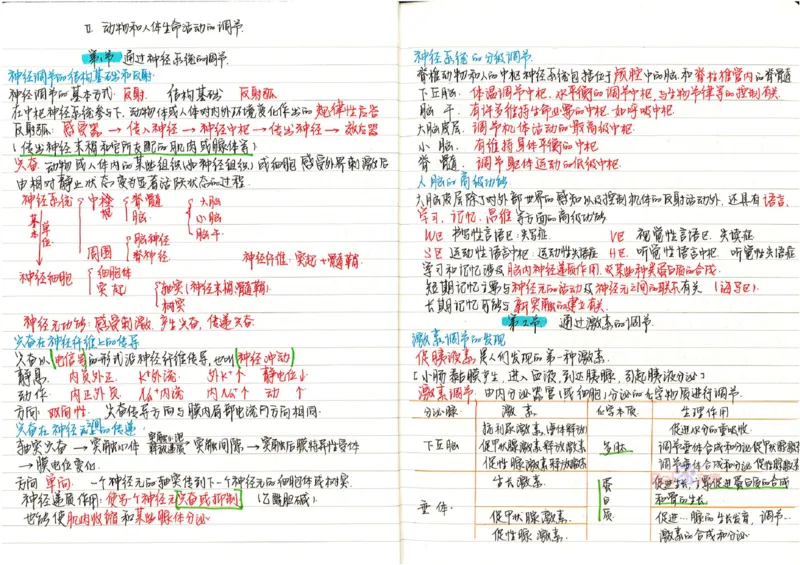 II 动物和人体生命活动的调节
第1节 通过神经系统的调节
神经调节的结构基础和反射
神经调节的基本方式: 反射 结构基础 反射弧
在中枢神经系统参与下,动物体或人体对内外环境变化作出的规律性应答
反射弧: 感受器→传入神经→神经中枢→传出神经→效应器
(传出神经末梢和它所支配的肌肉或腺体等)
兴奋: 动物或人体内的某些组织(如神经组织)或细胞感受外界刺激后
由相对静止状态变为显著活跃状态的过程.
神经系统 中枢 脊髓 大脑
脑 小脑
脑干
基本单位
周围 脑神经
脊神经
神经纤维: 突起+髓鞘
神经细胞 细胞体
突起 轴突(神经末梢,髓鞘)
树突
神经元功能: 感受刺激,产生兴奋,传递兴奋
兴奋在神经纤维上的传导
兴奋以电信号的形式沿神经纤维传导,也叫神经冲动
静息: 内负外正 K⁺外流 外K⁺↑ 静电位↓
动作: 内正外负 Na⁺内流 内Na⁺↑ 动↑
方向: 双向性. 兴奋传导方向与膜内局部电流方向相同.
兴奋在神经元之间的传递
轴突兴奋→突触小体→突触间隙→突触后膜特异性受体
→膜电位变化.
方向 单向: 一个神经元的轴突传到下一个神经元的细胞体或树突.
神经递质作用: 使另一个神经元兴奋或抑制 (乙酰胆碱).
也能使肌肉收缩和某些腺体分泌.
神经系统的分级调节
脊椎动物和人的中枢神经系统包括位于颅腔中的脑和脊柱椎管内的脊髓
下丘脑: 体温调节中枢、水平衡的调节中枢,与生物节律等的控制有关.
脑干: 有许多维持生命必要的中枢.如呼吸中枢
大脑皮层: 调节机体活动的最高级中枢.
小脑: 有维持身体平衡的中枢
脊髓: 调节躯体运动的低级中枢.
人脑的高级功能
大脑皮层除了对外部世界的感知以及控制机体的反射活动外,还具有语言,
学习、记忆、思维等方面的高级功能
W区 书写性言语区.失写症. V区 视觉性言语区.失读症
S区 运动性语言中枢.运动性失语症 H区 听觉性语言中枢.听觉性失语症
学习和记忆涉及脑内神经递质作用,以及某些种类蛋白质的合成.
短期记忆主要与神经元的活动及神经元之间的联系有关 (海马区).
长期记忆可能与新突触的建立有关.
第2节 通过激素的调节.
激素调节的发现
促胰液素是人们发现的第一种激素.
[小肠黏膜产生,进入血液,到达胰腺,引起胰液分泌]
激素调节 由内分泌器官(或细胞)分泌的化学物质进行调节.
分泌腺 激素 化学本质 生理作用
下丘脑 抗利尿激素,垂体释放 多肽 促进水分的重吸收.
促甲状腺激素释放激素 调节垂体合成和分泌促甲状腺激
促性腺激素释放激素 调节垂体合成和分泌促性腺激素
垂体. 生长激素 蛋白质 促进生长,主要促进蛋白质的合成
和骨的生长
促甲状腺激素. 促进…腺的生长发育,调节…
促性腺激素. 激素的合成和分泌.